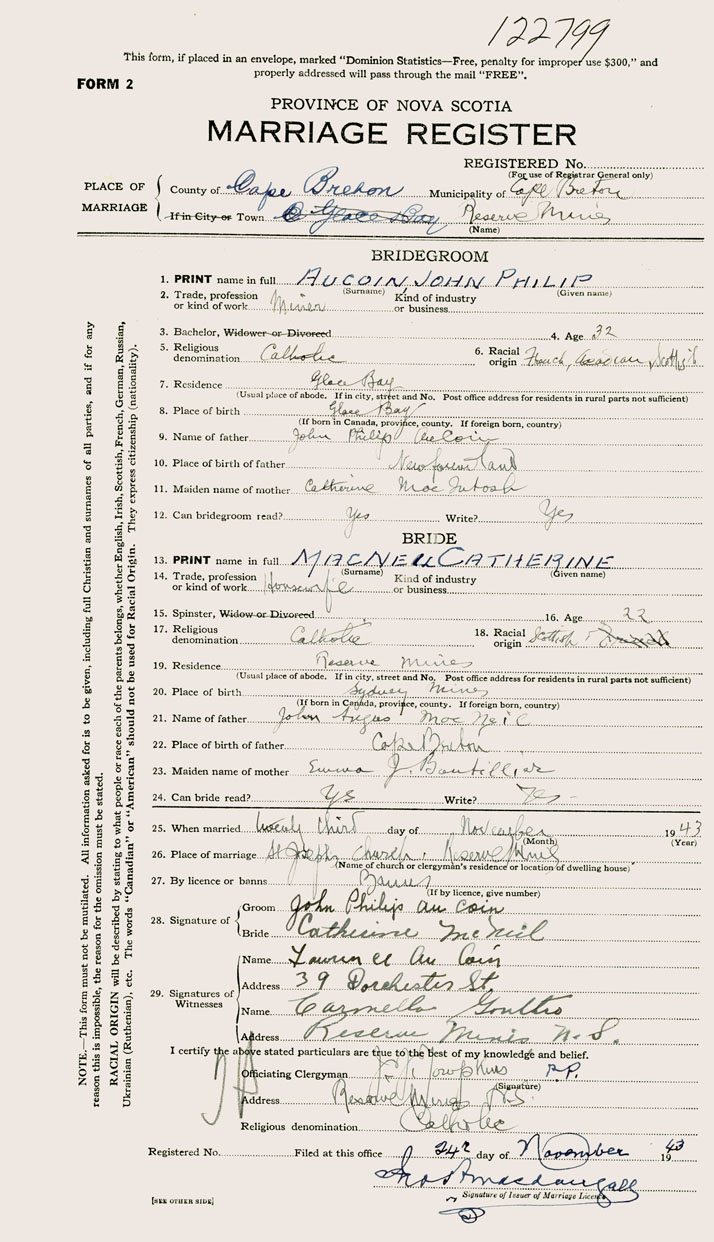 122799
This form, if placed in an envelope, marked “Dominion Statistics—Free, penalty for improper use $300,” and
properly addressed will pass through the mail “FREE”.
FORM 2
PROVINCE OF NOVA SCOTIA
MARRIAGE REGISTER
REGISTERED No.
(For use of Registrar General only)
PLACE OF MARRIAGE
County of Cape Breton Municipality of Cape Breton
If in City or Town Glace Bay Reserve Mines
(Name)
BRIDEGROOM
1. PRINT name in full AUCOIN, JOHN PHILIP
(Surname) (Given name)
2. Trade, profession or kind of work Miner Kind of industry or business
3. Bachelor, Widower or Divorced 4. Age 32
5. Religious denomination Catholic 6. Racial origin French, Acadian, Scottish
7. Residence Glace Bay
(Usual place of abode. If in city, street and No. Post office address for residents in rural parts not sufficient)
8. Place of birth Glace Bay
(If born in Canada, province, county. If foreign born, country)
9. Name of father John Philip AuCoin
10. Place of birth of father Newfoundland
11. Maiden name of mother Catherine MacIntosh
12. Can bridegroom read? Yes Write? Yes
BRIDE
13. PRINT name in full MACNEIL CATHERINE
(Surname) (Given name)
14. Trade, profession or kind of work Housewife Kind of industry or business
15. Spinster, Widow or Divorced 16. Age 22
17. Religious denomination Catholic 18. Racial origin Scottish
19. Residence Reserve Mines
(Usual place of abode. If in city, street and No. Post office address for residents in rural parts not sufficient)
20. Place of birth Sydney Mines
(If born in Canada, province, county. If foreign born, country)
21. Name of father John Angus MacNeil
22. Place of birth of father Cape Breton
23. Maiden name of mother Emma J. Boutillier
24. Can bride read? Yes Write? Yes
25. When married twenty third day of November 1943
(Month) (Year)
26. Place of marriage St Joseph Church, Reserve Mines
(Name of church or clergyman's residence or location of dwelling house)
27. By licence or banns Banns
(If by licence, give number)
28. Signature of
Groom John Philip Au Coin
Bride Catherine McNeil
29. Signatures of Witnesses
Name Lawrence Au Coin
Address 39 Dorchester St.
Name Carmella
Address Reserve Mines N.S.
I certify the above stated particulars are true to the best of my knowledge and belief.
Officiating Clergyman J. J. Tompkins P.P.
(Signature)
Address Reserve Mines N.S.
Religious denomination Catholic
Registered No. Filed at this office 24 day of November 1943
Signature of Issuer of Marriage Licence
[SEE OTHER SIDE]
NOTE.—This form must not be mutilated. All information asked for is to be given, including full Christian and surnames of all parties, and if for any
reason this is impossible, the reason for the omission must be stated.
RACIAL ORIGIN will be described by stating to what people or race each of the parents belongs, whether English, Irish, Scottish, French, German, Russian,
Ukrainian (Ruthenian), etc. The words “Canadian” or “American” should not be used for Racial Origin. They express citizenship (nationality).